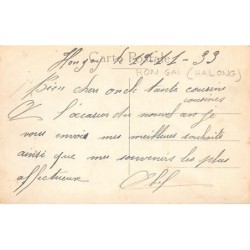 Carte Postale
Hongay 33
HON GAI (HALONG)
Bien chers oncle tante cousins
cousines
A l'occasion du nouvel an je
vous envoie mes meilleurs souhaits
ainsi que mes souvenirs les plus
affectueux